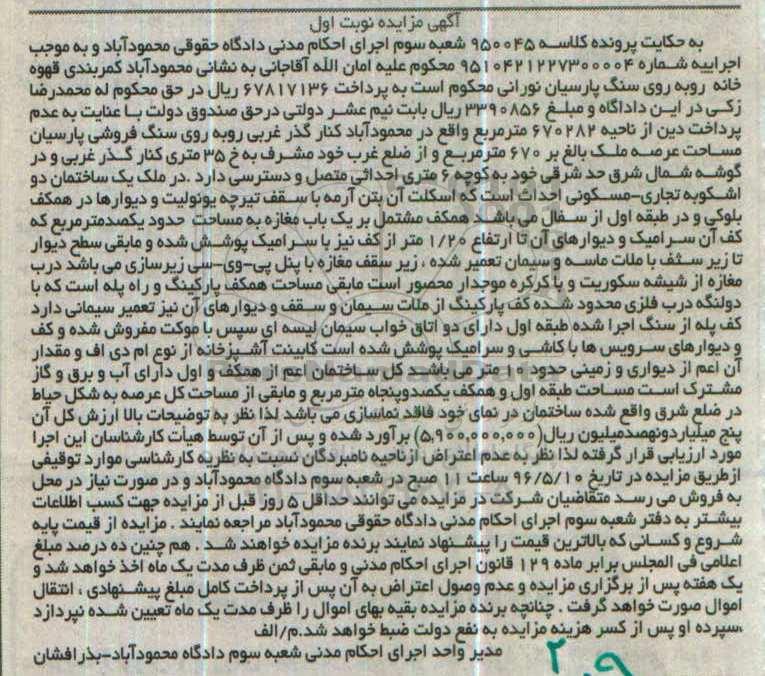 آگهی مزایده نوبت اول
به حکایت پرونده کلاسه ۹۵۰۰۴۵ شعبه سوم اجرای احکام مدنی دادگاه حقوقی محمودآباد و به موجب
اجراییه شماره ۹۵۱۰۴۲۱۲۲۷۳۰۰۰۰۴ محکوم علیه امان الله آقاجانی به نشانی محمودآباد کمربندی قهوه
خانه روبه روی سنگ پارسیان نورانی محکوم است به پرداخت ۶۷۸۱۷۱۳۶ ریال در حق محکوم له محمدرضا
زکی در این داداگاه و مبلغ ۳۳۹۰۸۵۶ ریال بابت نیم عشر دولتی درحق صندوق دولت با عنایت به عدم
پرداخت دین از ناحیه ۶۷۰۲۸۲ مترمربع واقع در محمودآباد کنار گذر غربی روبه روی سنگ فروشی پارسیان
مساحت عرصه ملک بالغ بر ۶۷۰ مترمربع و از ضلع غرب خود مشرف به خ ۳۵ متری کنار گذر غربی و در
گوشه شمال شرق حد شرقی خود به کوچه ۶ متری احداثی متصل و دسترسی دارد .در ملک یک ساختمان دو
اشکوبه تجاری-مسکونی احداث است که اسکلت آن بتن آرمه با سقف تیرچه یونولیت و دیوارها در همکف
بلوکی و در طبقه اول از سفال می باشد همکف مشتمل بر یک باب مغازه به مساحت حدود یکصدمترمربع که
کف آن سرامیک و دیوارهای آن تا ارتفاع ۱/۲۰ متر از کف نیز با سرامیک پوشش شده و مابقی سطح دیوار
تا زیر سقف با ملات ماسه و سیمان تعمیر شده ، زیر سقف مغازه با پنل پی-وی-سی زیرسازی می باشد درب
مغازه از شیشه سکوریت و با کرکره موجدار محصور است مابقی مساحت همکف پارکینگ و راه پله است که با
دولنگه درب فلزی محدود شده کف پارکینگ از ملات سیمان و سقف و دیوارهای آن نیز تعمیر سیمانی دارد
کف پله از سنگ اجرا شده طبقه اول دارای دو اتاق خواب سیمان لیسه ای سپس با موکت مفروش شده و کف
و دیوارهای سرویس ها با کاشی و سرامیک پوشش شده است کابینت آشپزخانه از نوع ام دی اف و مقدار
آن اعم از دیواری و زمینی حدود ۱۰ متر می باشد کل ساختمان اعم از همکف و اول دارای آب و برق و گاز
مشترک است مساحت طبقه اول و همکف یکصدوپنجاه مترمربع و مابقی از مساحت کل عرصه به شکل حیاط
در ضلع شرق واقع شده ساختمان در نمای خود فاقد نماسازی می باشد لذا نظر به توضیحات بالا ارزش کل آن
پنج میلیاردونهصدمیلیون ریال(۵,۹۰۰,۰۰۰,۰۰۰) برآورد شده و پس از آن توسط هیأت کارشناسان این اجرا
مورد ارزیابی قرار گرفته لذا نظر به عدم اعتراض ازناحیه نامبردگان نسبت به نظریه کارشناسی موارد توقیفی
ازطریق مزایده در تاریخ ۹۶/۵/۱۰ ساعت ۱۱ صبح در شعبه سوم دادگاه محمودآباد و در صورت نیاز در محل
به فروش می رسد متقاضیان شرکت در مزایده می توانند حداقل ۵ روز قبل از مزایده جهت کسب اطلاعات
بیشتر به دفتر شعبه سوم اجرای احکام مدنی دادگاه حقوقی محمودآباد مراجعه نمایند . مزایده از قیمت پایه
شروع و کسانی که بالاترین قیمت را پیشنهاد نمایند برنده مزایده خواهند شد . هم چنین ده درصد مبلغ
اعلامی فی المجلس برابر ماده ۱۲۹ قانون اجرای احکام مدنی و مابقی ثمن ظرف مدت یک ماه اخذ خواهد شد و
یک هفته پس از برگزاری مزایده و عدم وصول اعتراض به آن پس از پرداخت کامل مبلغ پیشنهادی ، انتقال
اموال صورت خواهد گرفت . چنانچه برنده مزایده بقیه بهای اموال را ظرف مدت یک ماه تعیین شده نپردازد
،سپرده او پس از کسر هزینه مزایده به نفع دولت ضبط خواهد شد.م/الف
مدیر واحد اجرای احکام مدنی شعبه سوم دادگاه محمودآباد-بذرافشان